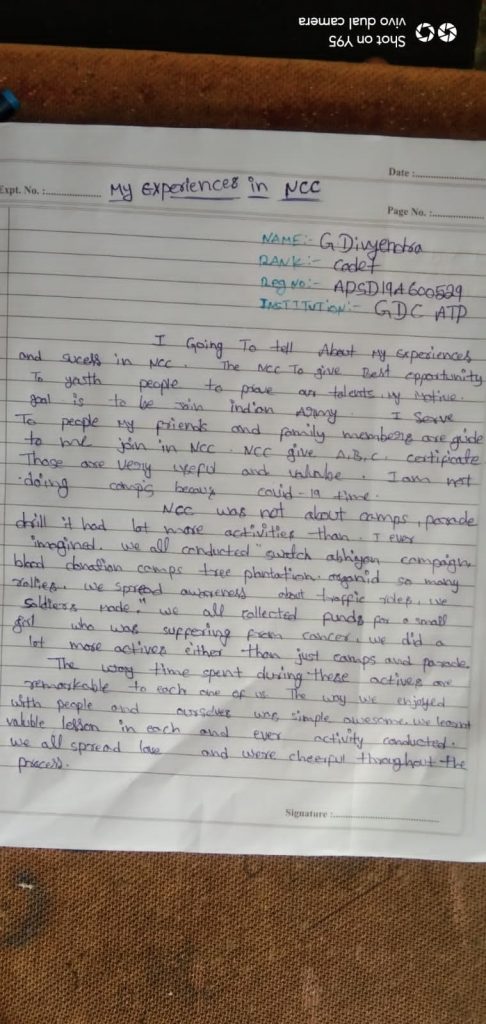 Shot on Y95
vivo dual camera
Date :
Expt. No. :
My Experiences in NCC
Page No. :
NAME:- G Divyendra
RANK:- Cadet
Reg No:- APSD19A600529
INSTITUTION:- GDC ATP
I Going To tell About My Experiences
and sucess in NCC. The NCC To give Best opportunity
To yasth people to prove our talents. My Motive.
goal is to be join indian Army. I Serve
To people My friends and family members are guide
to me join in NCC. NCC give A,B,C. certificate
Those are very useful and valuble. I am not
doing camps becaus covid-19 time.
NCC was not about camps, parade
drill it had lot more activities than. I ever
imagined. we all conducted "swatch abhigan campaign
blood donation camps tree plantation. organid so many
rallies. we spread awareness about traffic rules, we
soldiers made." we all collected funds for a small
girl who was suffering from cancer. we did a
lot more actives either than just camps and parade.
The way time spent during these actives are
remarkable to each one of us. The way we enjoyed
with people and ourselves was simple awesome. we learnt
valuble lesson in each and ever activity conducted.
we all spread love and were cheerful throughout the
process.
Signature :